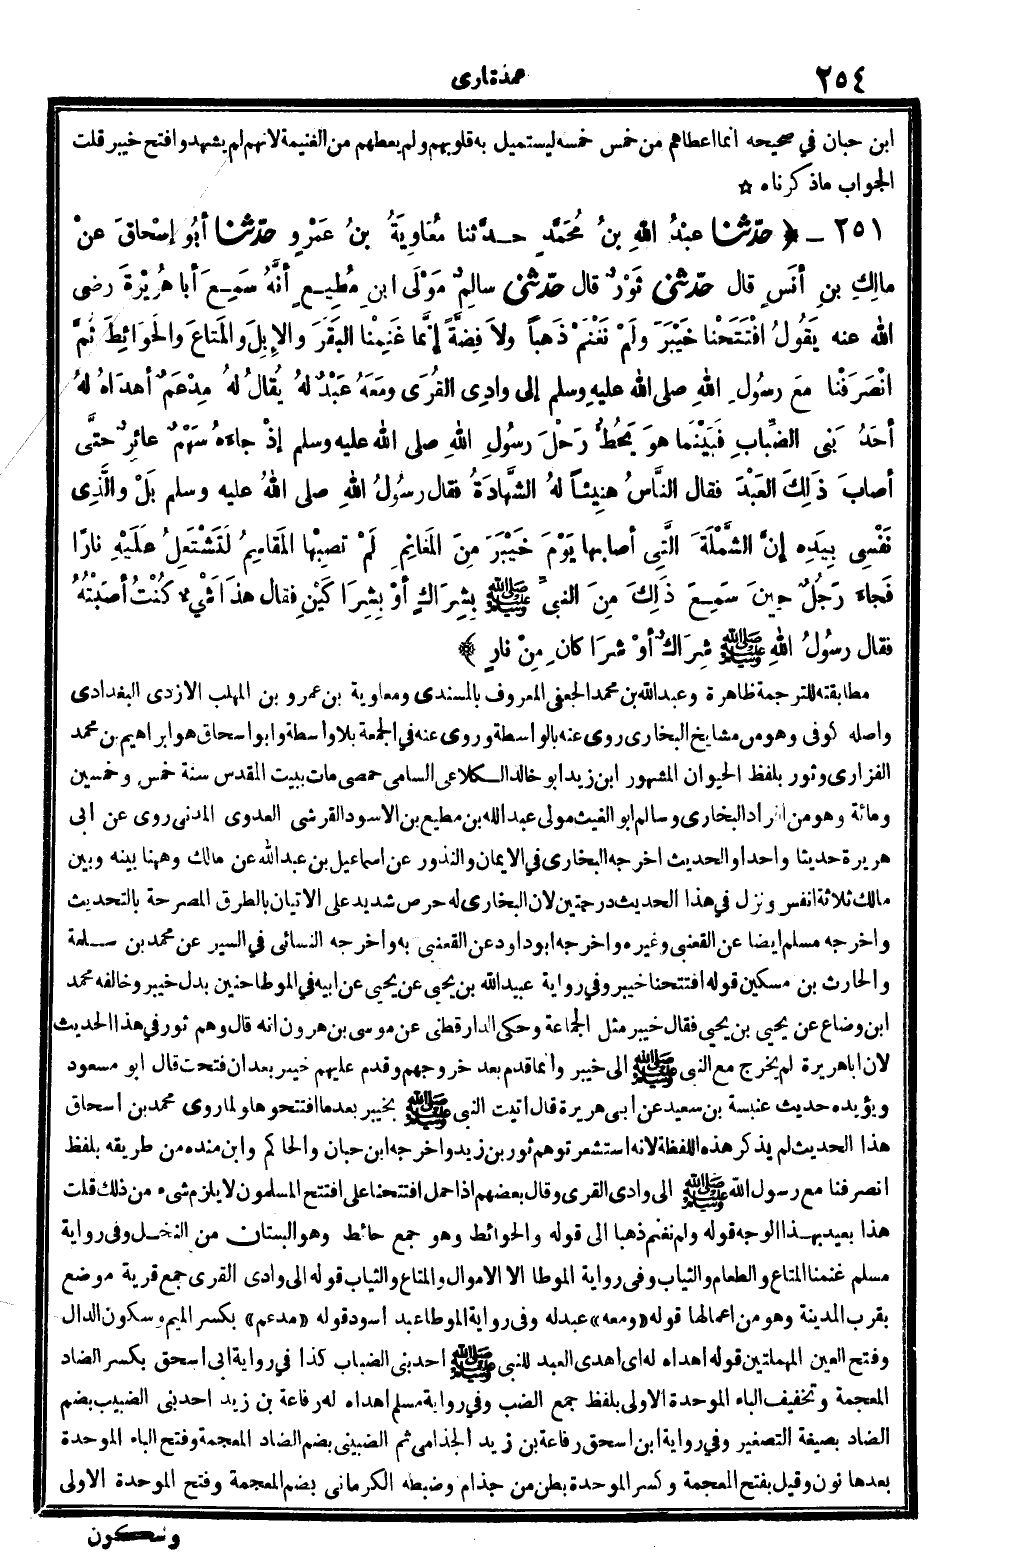 ٢٥٤
عمدة قاری
ابن حبان في صحيحه انما اعطاهم من خمس خمسه ليستميل به قلوبهم ولم يعطهم من الغنيمة لانهم لم يشهدوا فتح خيبر قلت
الجواب ماذكرناه ☆
٢٥١ ـ ﴿ حَدَّثَنَا عبْدُ اللهِ بنُ مُحَمَّدٍ حــدَّثنا مُعَاوِيَةُ بنُ عَمْرٍو حَدَّثَنَا أبُو إسْحاقَ عنْ
مالِكِ بنِ أنَسٍ قال حَدَّثَنِي ثَوْرٌ قال حَدَّثَنِي سالِمٌ مَوْلَى ابنِ مُطِيعٍ أنَّهُ سَمِعَ أبا هُرَيْرَةَ رضى
الله عنه يَقُولُ افْتَتَحْنا خَيْبَرَ ولَمْ نَغْنَمْ ذَهباً ولاَ فِضَّةً إنَّما غَنِمْنا البَقَرَ والإِبِلَ والمَتاعَ والحَوائِطَ ثُمَّ
انْصَرَفْنا معَ رسُولِ اللهِ صلى الله عليهِ وسلم إلى وادِى القُرَى ومَعَهُ عَبْدٌ لهُ يُقالُ لهُ مِدْعَمٌ أهْدَاهُ لهُ
أحَدُ بَنِى الضِّبابِ فَبَيْنَما هوَ يَحُطُّ رَحْلَ رسُولِ اللهِ صلى الله عليه وسلم إذْ جاءَهُ سَهْمٌ عائِرٌ حتَّى
أصابَ ذٰلِكَ العَبْدَ فقال النَّاسُ هَنِيئاً لهُ الشَّهادَةُ فقال رسُولُ اللهِ صلى اللهُ عليه وسلم بَلْ والَّذِى
نَفْسِى بِيَدِهِ إنَّ الشَّمْلَةَ الَّتِى أصابها يَوْمَ خَيْبَرَ مِنَ المَغانِمِ لَمْ تصِبْها المَقاسِمُ لَتَشْتَعِلُ عليْهِ نارًا
فَجاءَ رَجُلٌ حِينَ سَمِعَ ذٰلِكَ مِنَ النبىِّ ﷺ بِشِرَاكٍ أوْ بِشِرَاكَيْنِ فقال هذَا شَىْءٌ كُنْتُ أصَبْتُهُ
فقال رسُولُ اللهِ ﷺ شِرَاكٌ أوْ شرَاكانِ مِنْ نارٍ ﴾
مطابقته للترجمة ظاهرة وعبدالله بن محمد الجعفى المعروف بالمسندى ومعاوية بن عمرو بن المهلب الازدى البغدادى
واصله كوفى وهو من مشايخ البخارى روى عنه بالواسطة وروى عنه في الجمعة بلا واسطة وابو اسحاق هو ابراهيم بن محمد
الفزارى وثور بلفظ الحيوان المشهور ابن زيد ابو خالد الكلاعى السامى حمصى مات ببيت المقدس سنة خمس وخمسين
ومائة وهو من افراد البخارى وسالم ابو الغيث مولى عبدالله بن مطيع بن الاسود القرشى العدوى المدنى روى عن ابى
هريرة حديثا واحدا والحديث اخرجه البخارى في الايمان والنذور عن اسماعيل بن عبدالله عن مالك وههنا بينه وبين
مالك ثلاثة انفس ونزل في هذا الحديث درجتين لان البخارى له حرص شديد على الاتيان بالطرق المصرحة بالتحديث
واخرجه مسلم ايضا عن القعنبى وغيره واخرجه ابوداود عن القعنبى به واخرجه النسائى في السير عن محمد بن سلمة
والحارث بن مسكين قوله افتتحنا خيبر وفي رواية عبيدالله بن يحيى عن يحيى عن ابيه في الموطا حنين بدل خيبر وخالفه محمد
ابن وضاع عن يحيى بن يحيى فقال خيبر مثل الجماعة وحكى الدارقطنى عن موسى بن هرون انه قال وهم ثور في هذا الحديث
لان اباهريرة لم يخرج مع النبى ﷺ الى خيبر وانما قدم بعد خروجهم وقدم عليهم خيبر بعد ان فتحت قال ابو مسعود
ويؤيده حديث عنبسة بن سعيد عن ابى هريرة قال اتيت النبى ﷺ بخيبر بعدما افتتحوها ولما روى محمد بن اسحاق
هذا الحديث لم يذكر هذه اللفظة لانه استشعر توهم ثور بن زيد واخرجه ابن حبان والحاكم وابن منده من طريقه بلفظ
انصرفنا مع رسول الله ﷺ الى وادى القرى وقال بعضهم اذا حمل افتتحنا على افتتح المسلمون لا يلزم شىء من ذلك قلت
هذا بعيد بهــذا الوجه قوله ولم نغنم ذهبا الى قوله والحوائط وهو جمع حائط وهو البستان من النخل وفى رواية
مسلم غنمنا المتاع والطعام والثياب وفى رواية الموطا الا الاموال والمتاع والثياب قوله الى وادى القرى جمع قرية موضع
بقرب المدينة وهو من اعمالها قوله «ومعه» عبد له وفى رواية الموطا عبد اسود قوله «مدعم» بكسر الميم وسكون الدال
وفتح العين المهملتين قوله اهداه له اى اهدى العبد للنبى ﷺ احد بنى الضباب كذا في رواية ابى اسحق بكسر الضاد
المعجمة وتخفيف الباء الموحدة الاولى بلفظ جمع الضب وفي رواية مسلم اهداه له رفاعة بن زيد احد بنى الضبيب بضم
الضاد بصيغة التصغير وفي رواية ابن اسحق رفاعة بن زيد الجذامى ثم الضبينى بضم الضاد المعجمة وفتح الباء الموحدة
بعدها نون وقيل بفتح المعجمة وكسر الموحدة بطن من جذام وضبطه الكرمانى بضم المعجمة وفتح الموحدة الاولى
وسكون